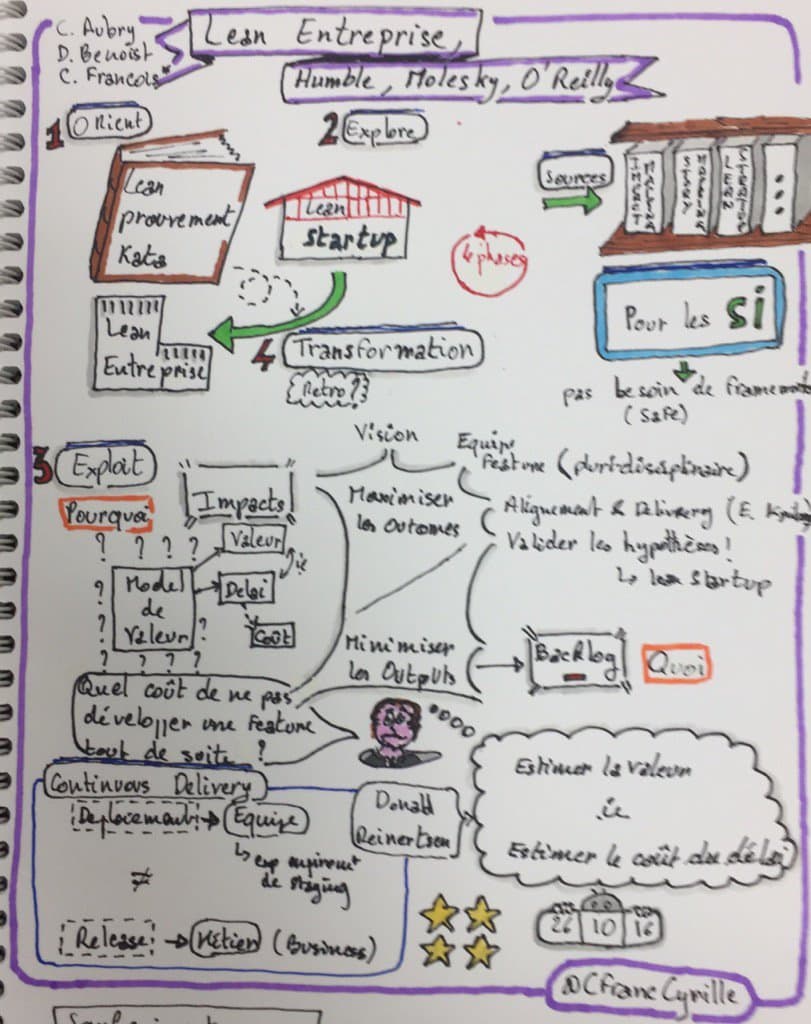 C. Aubry
D. Benoist
C. Francois*
Lean Entreprise,
Humble, Molesky, O'Reilly
1 Orient
Lean
prouvement
Kata
2 Explore
Lean
Startup
4 phases
Sources
IMPACT
MAPPING
STORY
MAPPING
LEAN
STARTUP
...
Pour les SI
pas besoin de framework
(Safe)
Lean
Entreprise
4 Transformation
(Retro?)
3 Exploit
Pourquoi
Impacts
Vision
Maximiser
les Outcomes
Equipe
Feature (pluri-disciplinaire)
Alignement & Delivery (E.
Valider les hypothèses!
↳ lean startup
? ? ? ?
?
?
?
?
? ? ? ?
Model
de
Valeur
Valeur
ie
Delai
Coût
Minimiser
les Outputs
Backlog
Quoi
Quel coût de ne pas
développer une feature
tout de suite ?
Continuous Delivery
Deploiement
Equipe
↳ exp
de staging
≠
Release
Métier (Business)
Donald
Reinertsen
Estimer la valeur
ie
Estimer le coût du délai
26 10 16
@CfrancCyrille